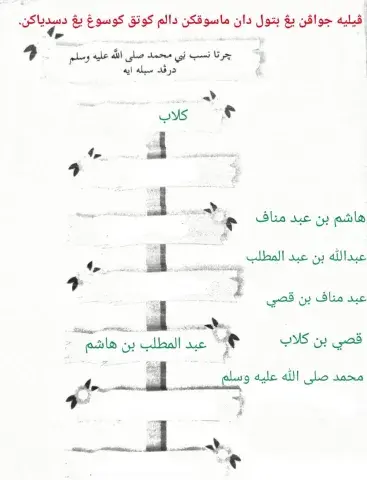 ڤيليه جواڤن يڠ بتول دان ماسوقكن دالم كوتق كوسوڠ يڠ دسدياكن.
چرتا نسب نبي محمد صلى الله عليه وسلم
درڤد سبله ايه
كلاب
هاشم بن عبد مناف
عبدالله بن عبد المطلب
عبد مناف بن قصي
قصي بن كلاب
عبد المطلب بن هاشم
محمد صلى الله عليه وسلم